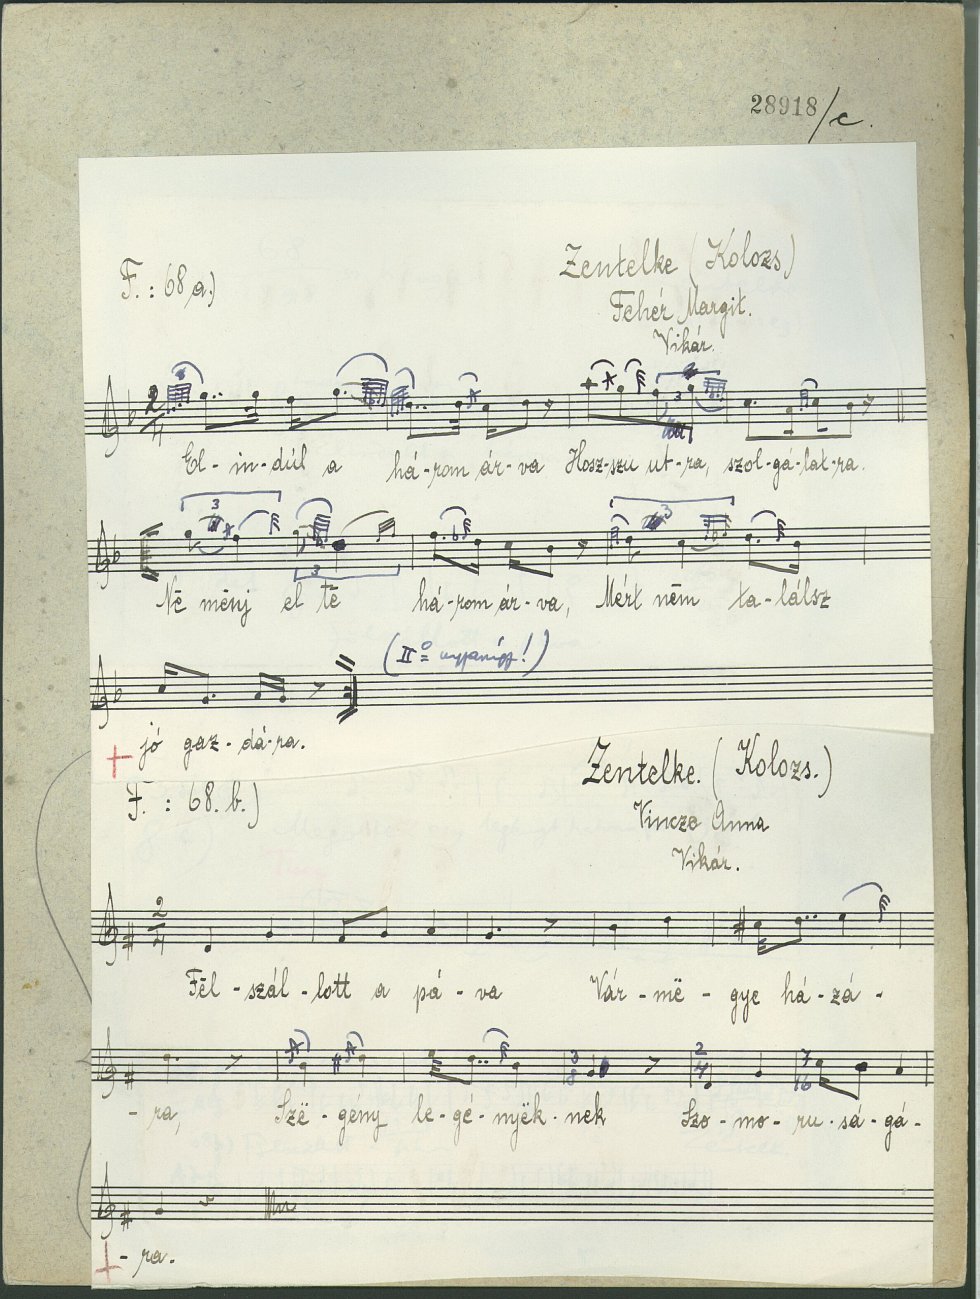 28918/c.
F.: 68 a.)
Zentelke (Kolozs)
Fehér Margit.
Vikár.
El-in-dúl a há-rom ár-va Hosz-szu ut-ra, szol-gá-lat-ra.
Në mënj el të há-rom ár-va, Mért nëm ta-lálsz
(II°
jó gaz-dá-ra.
F.: 68. b.)
Zentelke. (Kolozs.)
Vincze Anna
Vikár.
Fël-szál-lott a pá-va Vár-më-gye há-zá-
-ra, Szë-gény le-gé-nyëk-nek Szo-mo-ru-sá-gá-
-ra.